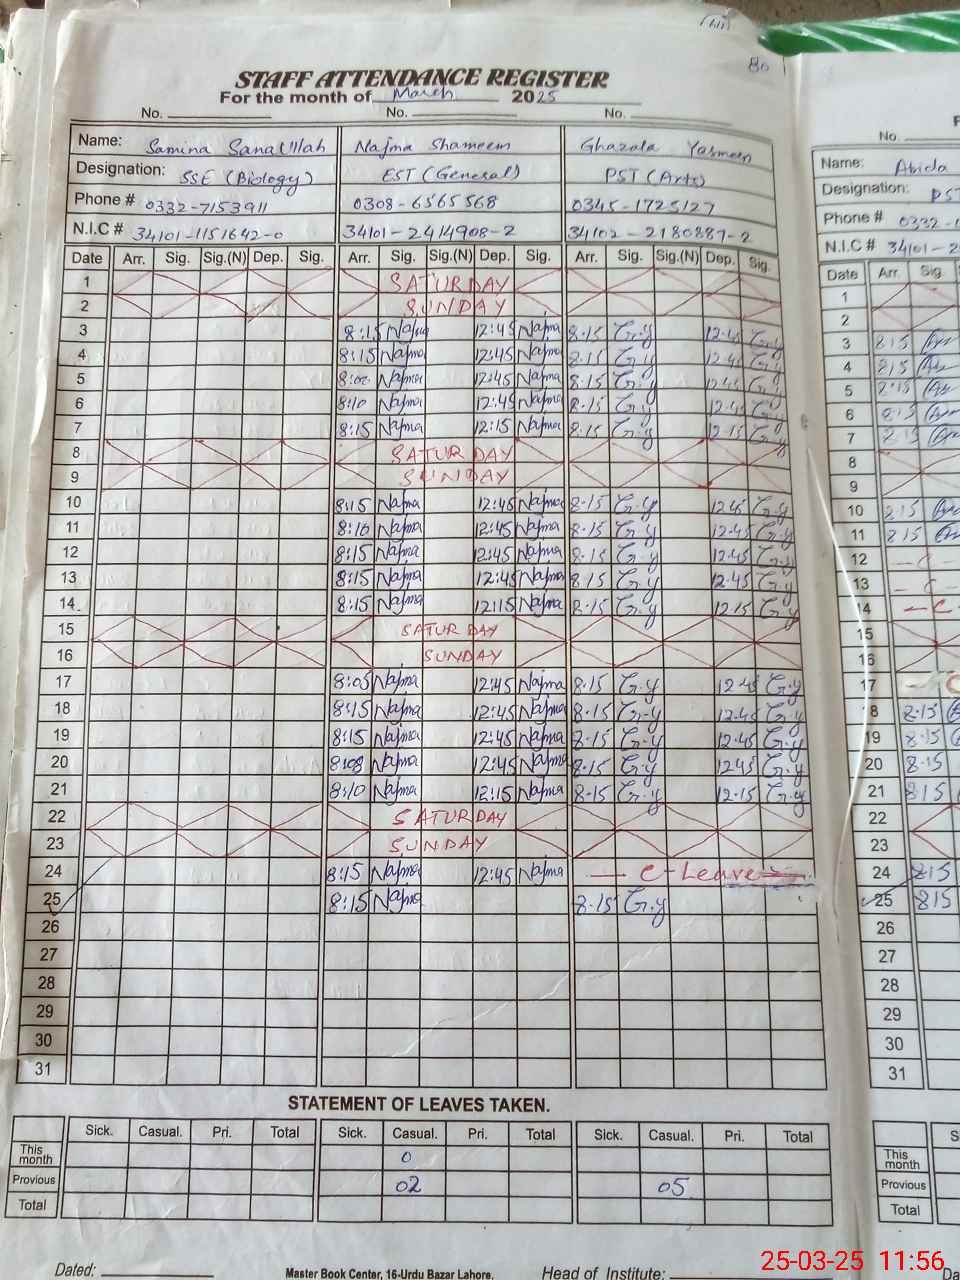 80
STAFF ATTENDANCE REGISTER
For the month of March 2025
No. No. No.
Name: Samina Sanaullah Najma Shameem Ghazala Yasmeen
Designation: SSE (Biology) EST (General) PST (Arts)
Phone # 0332-7153911 0308-6565568 0345-1725127
N.I.C # 34101-1151642-0 34101-2414908-2 34102-2180887-2
Date Arr. Sig. Sig.(N) Dep. Sig. Arr. Sig. Sig.(N) Dep. Sig. Arr. Sig. Sig.(N) Dep. Sig.
1 SATURDAY
2 SUNDAY
3 8:15 Najma 12:45 Najma 8.15 G.y 12.45 G.y
4 8:15 Najma 12:45 Najma 8.15 G.y 12.45 G.y
5 8:00 Najma 12:45 Najma 8.15 G.y 12.45 G.y
6 8:10 Najma 12:45 Najma 8.15 G.y 12.45 G.y
7 8:15 Najma 12:15 Najma 8.15 G.y 12.15 G.y
8 SATURDAY
9 SUNDAY
10 8:15 Najma 12:45 Najma 8.15 G.y 12.45 G.y
11 8:10 Najma 12:45 Najma 8.15 G.y 12.45 G.y
12 8:15 Najma 12:45 Najma 8.15 G.y 12.45 G.y
13 8:15 Najma 12:45 Najma 8.15 G.y 12.45 G.y
14 8:15 Najma 12:15 Najma 8.15 G.y 12.15 G.y
15 SATURDAY
16 SUNDAY
17 8:05 Najma 12:45 Najma 8.15 G.y 12.45 G.y
18 8:15 Najma 12:45 Najma 8.15 G.y 12.45 G.y
19 8:15 Najma 12:45 Najma 8.15 G.y 12.45 G.y
20 8:08 Najma 12:45 Najma 8.15 G.y 12.45 G.y
21 8:10 Najma 12:15 Najma 8.15 G.y 12.15 G.y
22 SATURDAY
23 SUNDAY
24 8:15 Najma 12:45 Najma C-Leave
25 8:15 Najma 8.15 G.y
26
27
28
29
30
31
STATEMENT OF LEAVES TAKEN.
Sick. Casual. Pri. Total Sick. Casual. Pri. Total Sick. Casual. Pri. Total
This month 0
Previous 02 05
Total
Dated: Master Book Center, 16-Urdu Bazar Lahore. Head of Institute:
No.
Name: Abida
Designation: PST
Phone # 0332-1
N.I.C # 34101-2
Date Arr. Sig.
1
2
3 815
4 815
5 8.15
6 8.15
7 8.15
8
9
10 8.15
11 815
12 - C -
13 - C
14 - C -
15
16
17 C
18 8.15
19 8.15
20 8.15
21 815
22
23
24 815
25 815
26
27
28
29
30
31
This month
Previous
Total
25-03-25 11:56